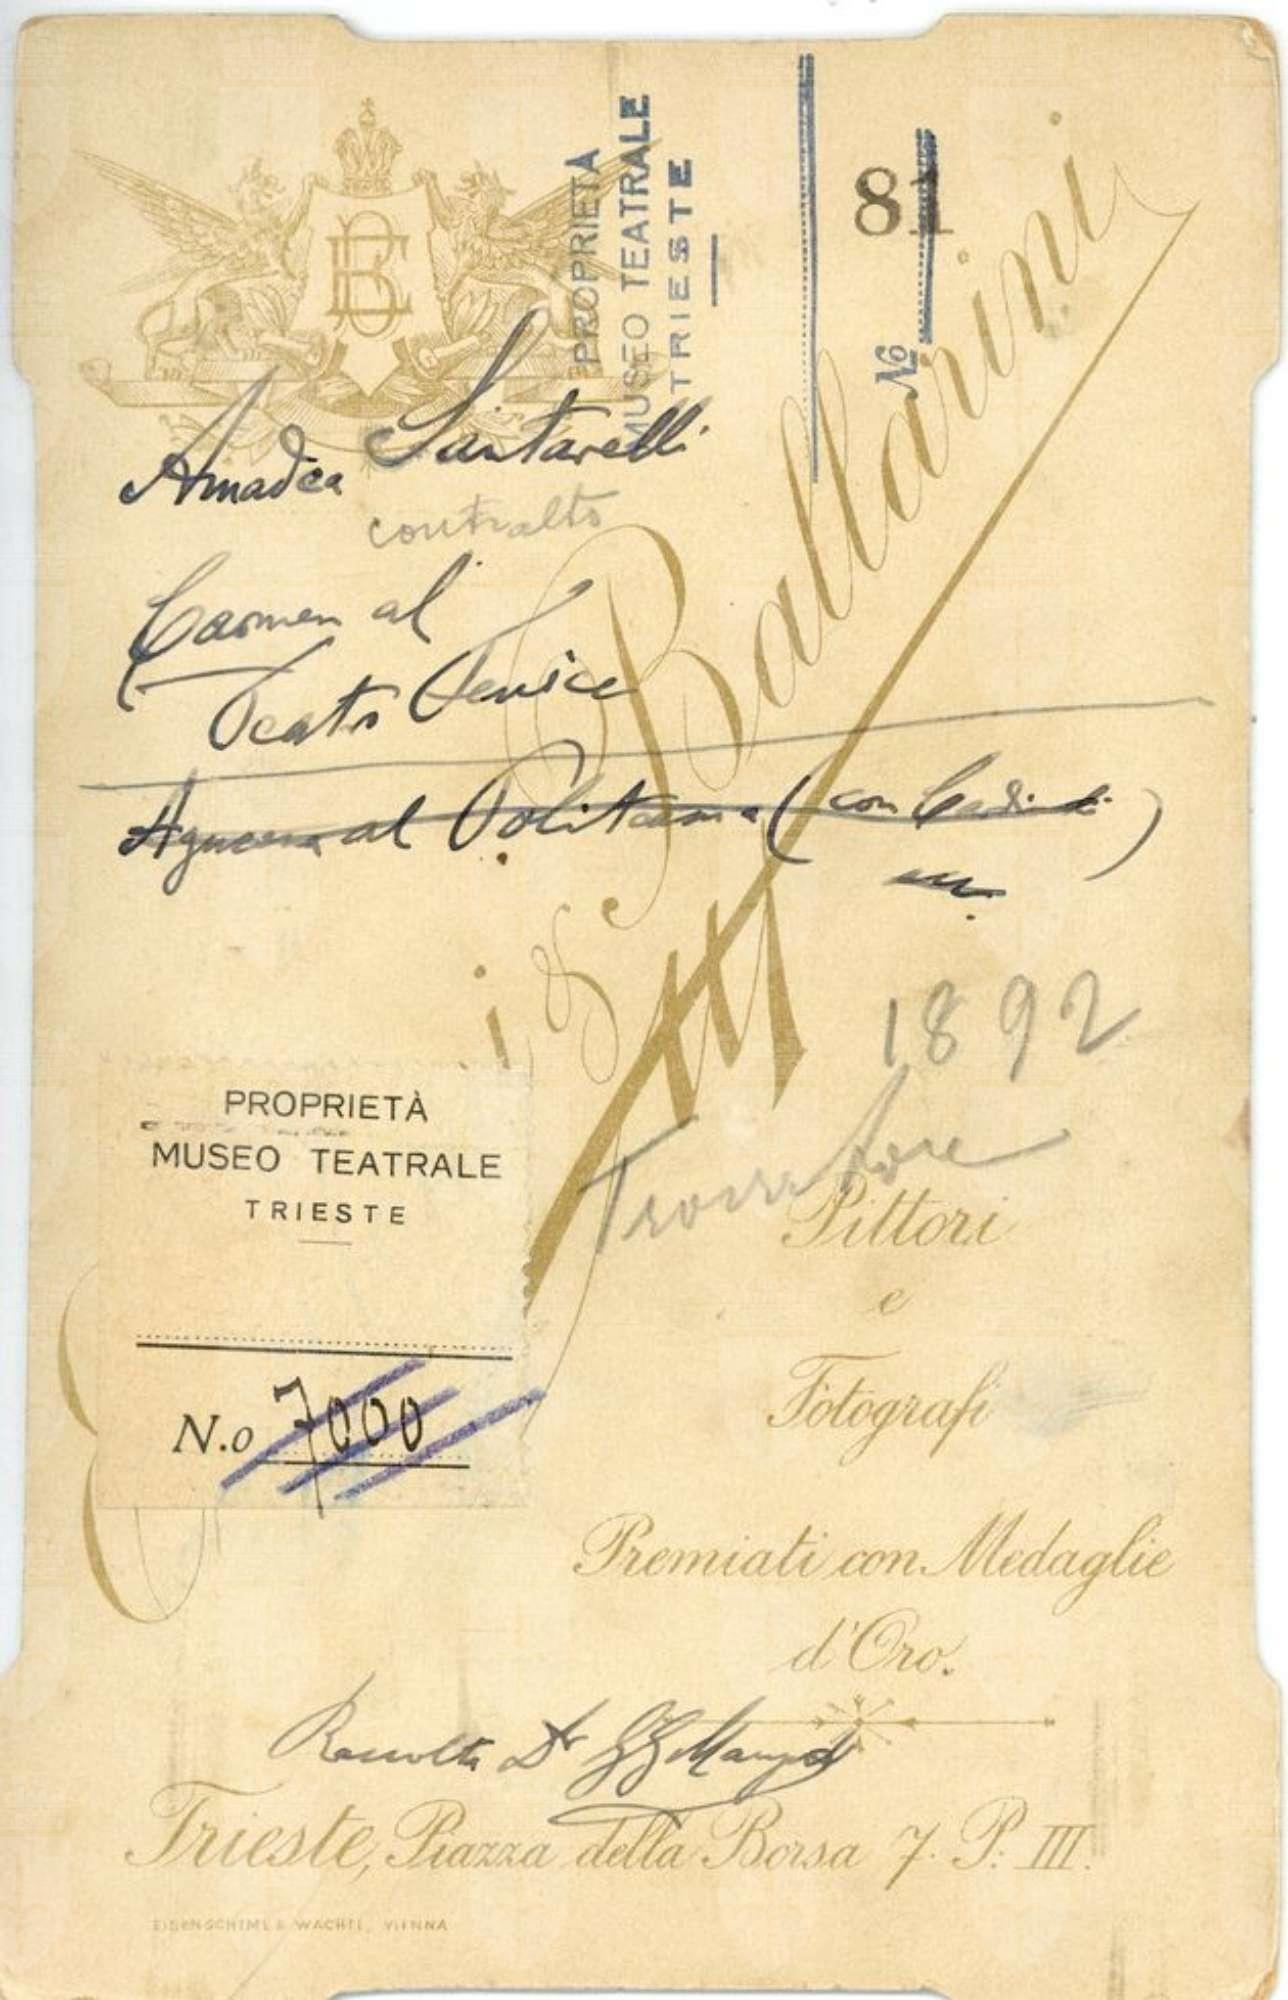 PROPRIETÀ
MUSEO TEATRALE
TRIESTE
No
81
EB
Amadea Santarelli
contralto
Carmen al
Teatro Fenice
al Politeama (con
1892
Trovatore
& Ballarini
PROPRIETÀ
MUSEO TEATRALE
TRIESTE
N.o 7000
Pittori
e
Fotografi
Premiati con Medaglie
d'Oro.
Raccolta Dr
Trieste, Piazza della Borsa 7. P. III.
EISENSCHIML & WACHTL, VIENNA